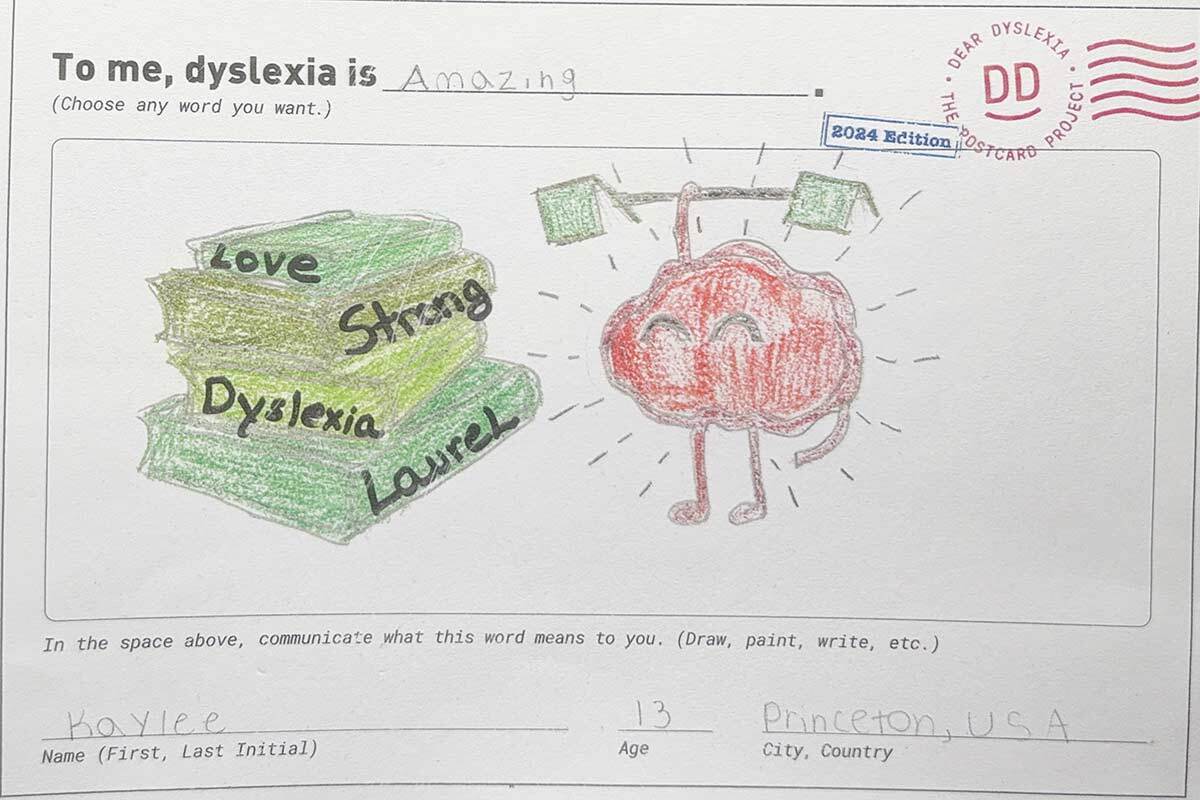 To me, dyslexia is Amazing.
(Choose any word you want.)
• DEAR DYSLEXIA • THE POSTCARD PROJECT
DD
2024 Edition
Love
Strong
Dyslexia
Laurel
In the space above, communicate what this word means to you. (Draw, paint, write, etc.)
Kaylee 13 Princeton, USA
Name (First, Last Initial) Age City, Country